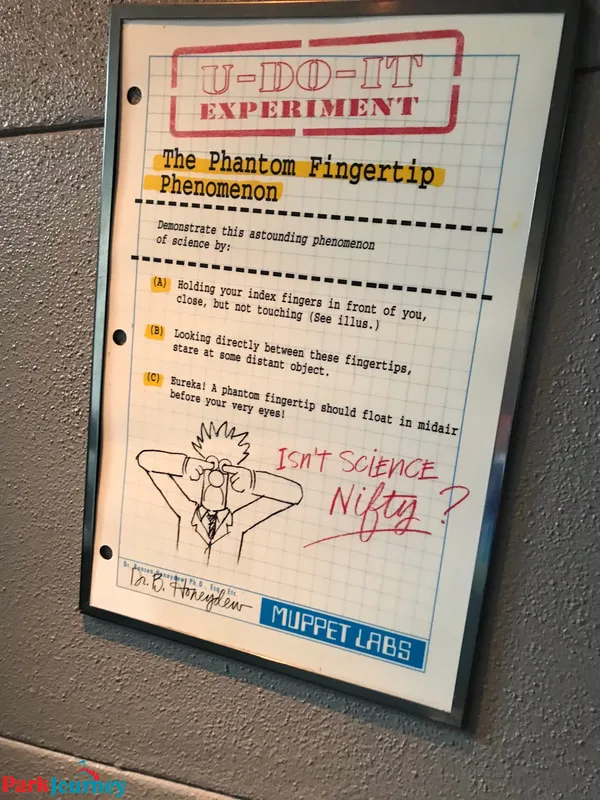 U-DO-IT
EXPERIMENT
The Phantom Fingertip
Phenomenon
Demonstrate this astounding phenomenon
of science by:
(A) Holding your index fingers in front of you,
close, but not touching (See illus.)
(B) Looking directly between these fingertips,
stare at some distant object.
(C) Eureka! A phantom fingertip should float in midair
before your very eyes!
Isn't Science
Nifty?
Dr. Bunsen Honeydew Ph.D., Esq., Etc.
Dr. B. Honeydew
MUPPET LABS
ParkJourney